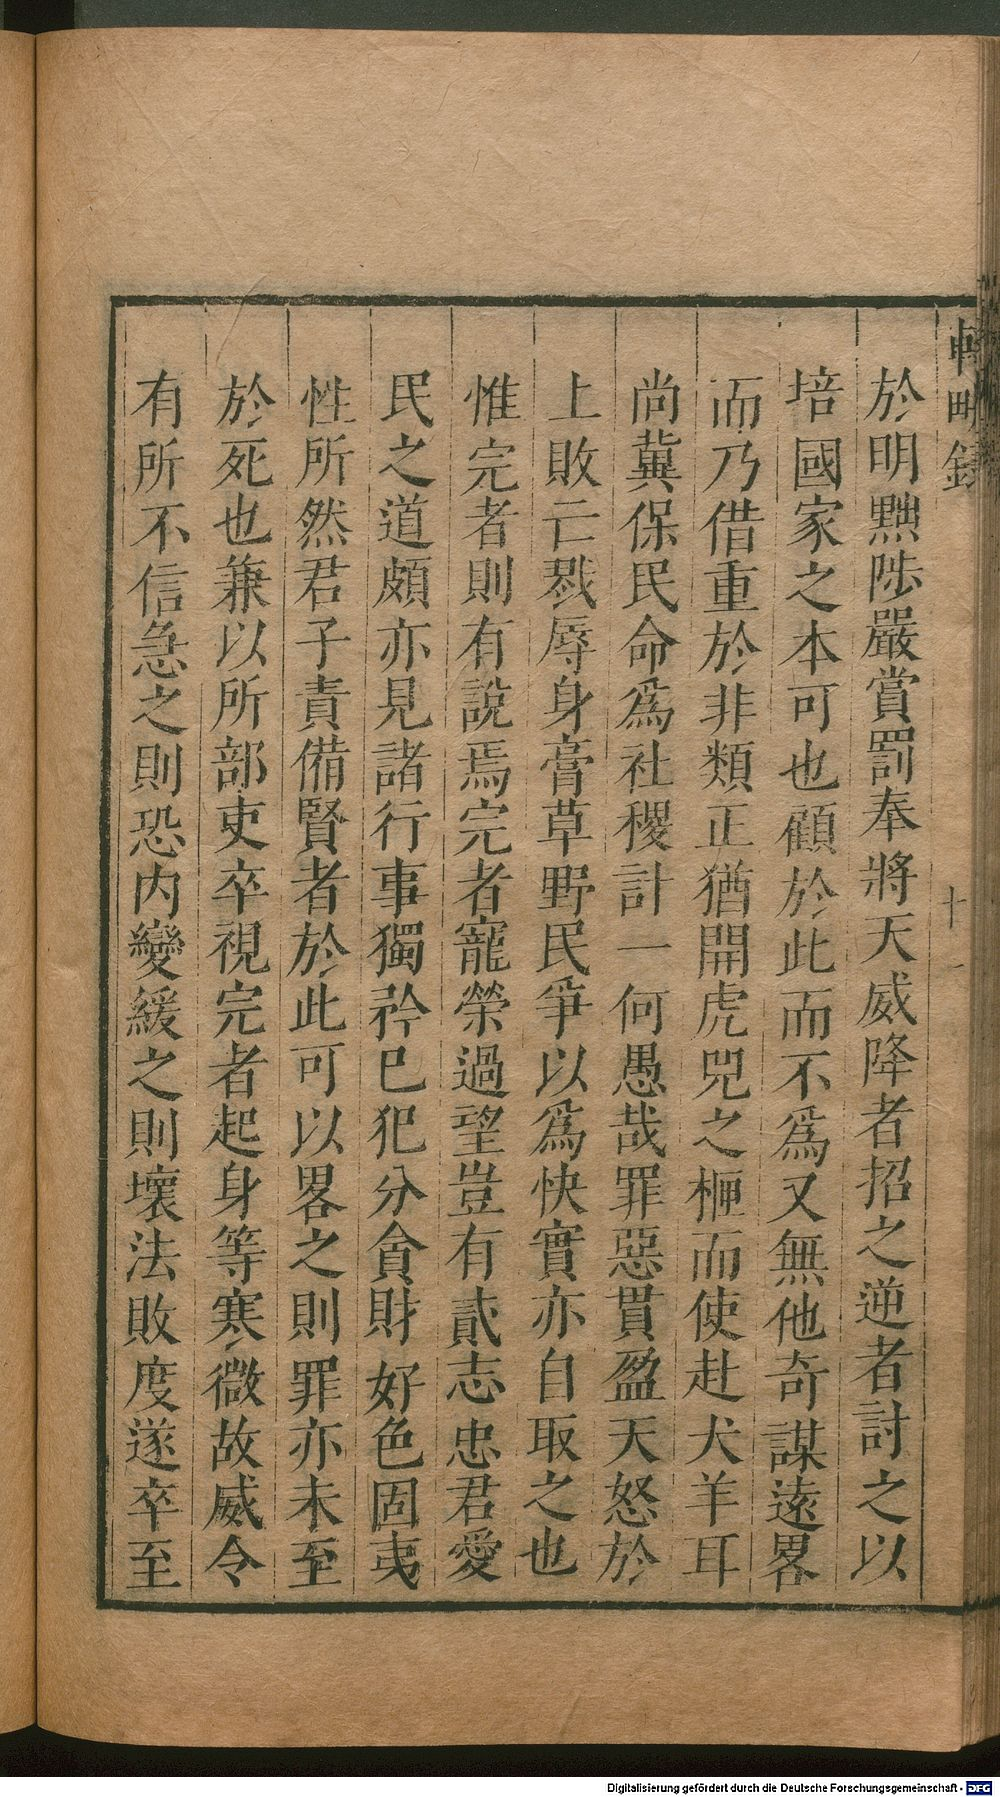 於明黜陟嚴賞罰奉將天威降者招之逆者討之以
培國家之本可也顧於此而不爲又無他奇謀遠畧
而乃借重於非類正猶開虎兕之柙而使赴犬羊耳
尚冀保民命爲社稷計一何愚哉罪惡貫盈天怒於
上敗亡戮辱身膏草野民爭以爲快實亦自取之也
惟完者則有說焉完者寵榮過望豈有貳志忠君愛
民之道頗亦見諸行事獨矜已犯分貪財好色固夷
性所然君子責備賢者於此可以畧之則罪亦未至
於死也兼以所部吏卒視完者起身等寒微故威令
有所不信急之則恐內變緩之則壞法敗度遂卒至
十一
Digitalisierung gefördert durch die Deutsche Forschungsgemeinschaft - DFG